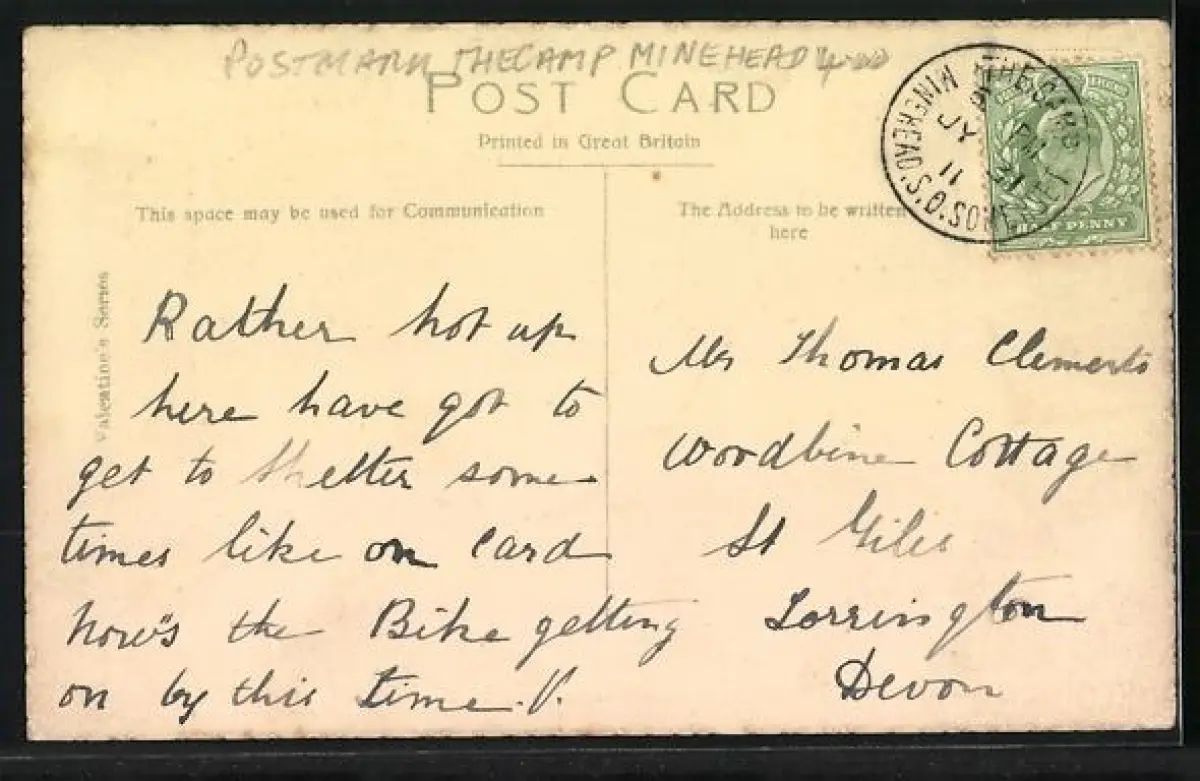 POSTMARK THE CAMP MINEHEAD 4.00
POST CARD
Printed in Great Britain
This space may be used for Communication
The Address to be written
here
Valentine's Series
THE CAMP
PM
JY 31
11
MINEHEAD.S.O.SOMERSET
HALF PENNY
Rather hot up
here have got to
get to shelter some
times like on card
how's the Bike getting
on by this time. V.
Mr Thomas Clements
Woodbine Cottage
St Giles
Torrington
Devon